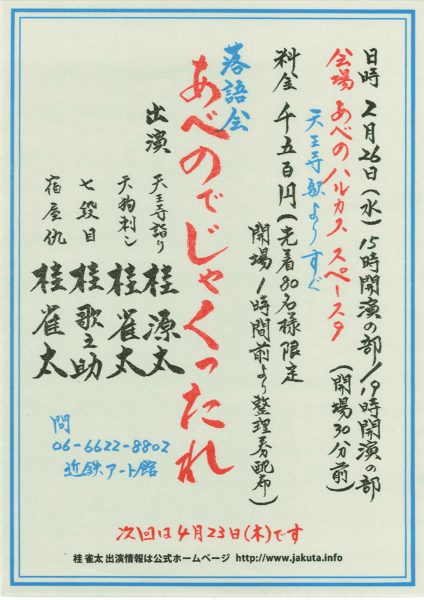 日時 2月26日(水) 15時開演の部/19時開演の部
(開場30分前)
会場 あべのハルカス スペース9
天王寺駅よりすぐ
料金 千五百円(先着80名様限定
開場1時間前より整理券配布)
落語会
あべのでじゃくったれ
出演
天王寺詣り 桂源太
天狗刺し 桂雀太
七段目 桂歌之助
宿屋仇 桂雀太
問
06-6622-8802
近鉄アート館
次回は4月23日(木)です
桂 雀太 出演情報は公式ホームページ http://www.jakuta.info